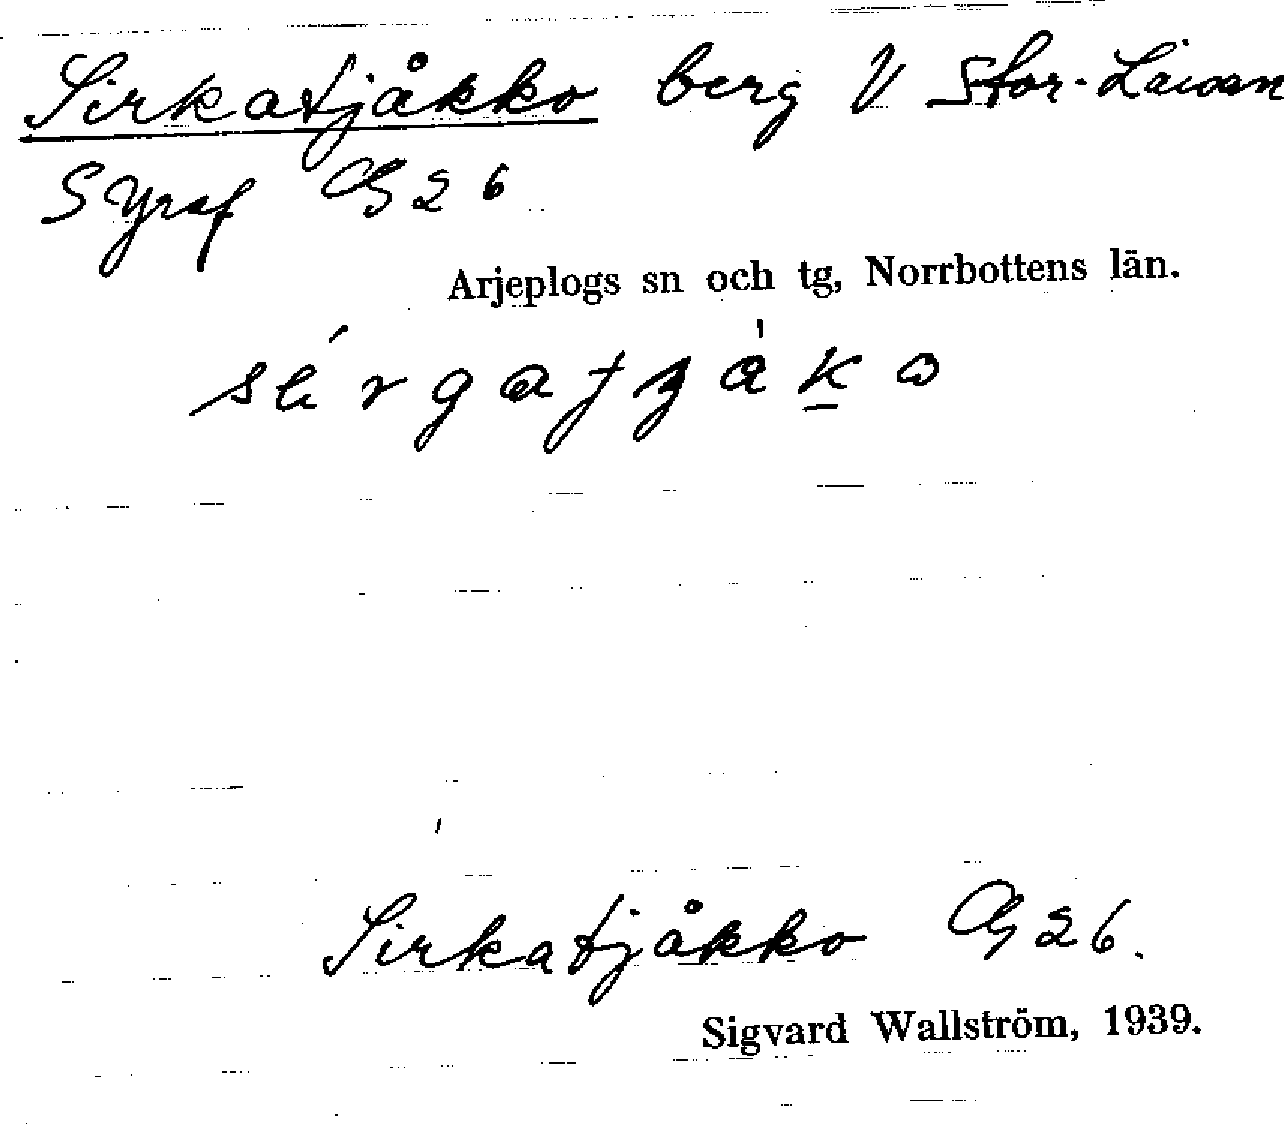 Sirkatjåkko berg V Stor-Laisan
S Yraf G 26
Arjeplogs sn och tg, Norrbottens län.
Sirkatjåkko G 26.
Sigvard Wallström, 1939.